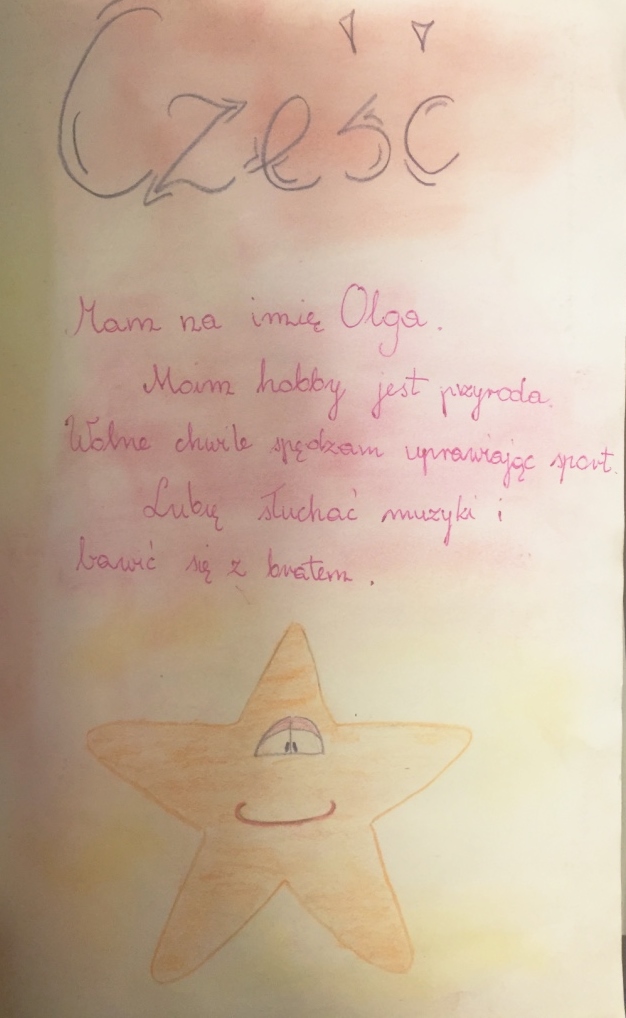 Cześć
Mam na imię Olga.
Moim hobby jest przyroda.
Wolne chwile spędzam uprawiając sport.
Lubię słuchać muzyki i
bawić się z bratem.